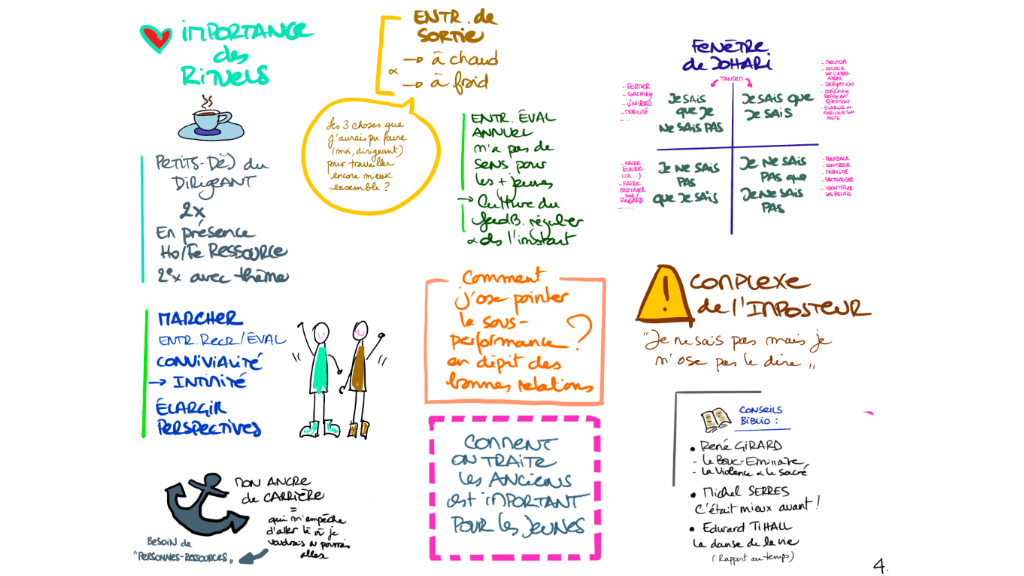 IMPORTANCE
des
RITUELS
PETITS-DÉJ du
DIRIGEANT
2x
En présence
Ho/Fe RESSOURCE
2ex avec thème
MARCHER
ENTR. RECR/ÉVAL
CONVIVIALITÉ
→ INTIMITÉ
ÉLARGIR
PERSPECTIVES
MON ANCRE
de CARRIÈRE
=
qui m'empêche
d'aller là où je
voudrais ou pourrais
aller
BESOIN de
"PERSONNES-RESSOURCES"
ENTR. de
SORTIE
→ à chaud
→ à froid
Les 3 choses que
j'aurais pu faire
(moi, dirigeant)
pour travailler
encore mieux
ensemble ?
ENTR. ÉVAL
ANNUEL
n'a pas de
sens pour
les + jeunes
→ Culture du
feedB. régulier
ds l'instant
Comment
j'ose pointer
la sous-
performance ?
en dépit des
bonnes relations
COMMENT
ON TRAITE
les ANCIENS
est IMPORTANT
POUR les JEUNES
FENÊTRE
de JOHARI
TANDEM
JE SAIS
QUE JE
NE SAIS PAS
JE SAIS QUE
JE SAIS
JE NE SAIS
PAS
QUE JE SAIS
JE NE SAIS
PAS que
JE NE SAIS
PAS
- COACHING
- MOBILITÉ
- FAIRE
ÉCRIRE
- FAIRE
PARTAGER
- MENTOR
- DÉLÉGATION
- FEEDBACK
- MOBILITÉ
- IDENTIFIER
LES RELAIS
COMPLEXE
de L'IMPOSTEUR
"Je ne sais pas mais je
n'ose pas le dire"
CONSEILS
BIBLIO :
• René GIRARD
- Le Bouc-Emissaire
- La Violence & le sacré
• Michel SERRES
C'était mieux avant !
• Edward T. HALL
La danse de la vie
(Rapport au temps)
4.